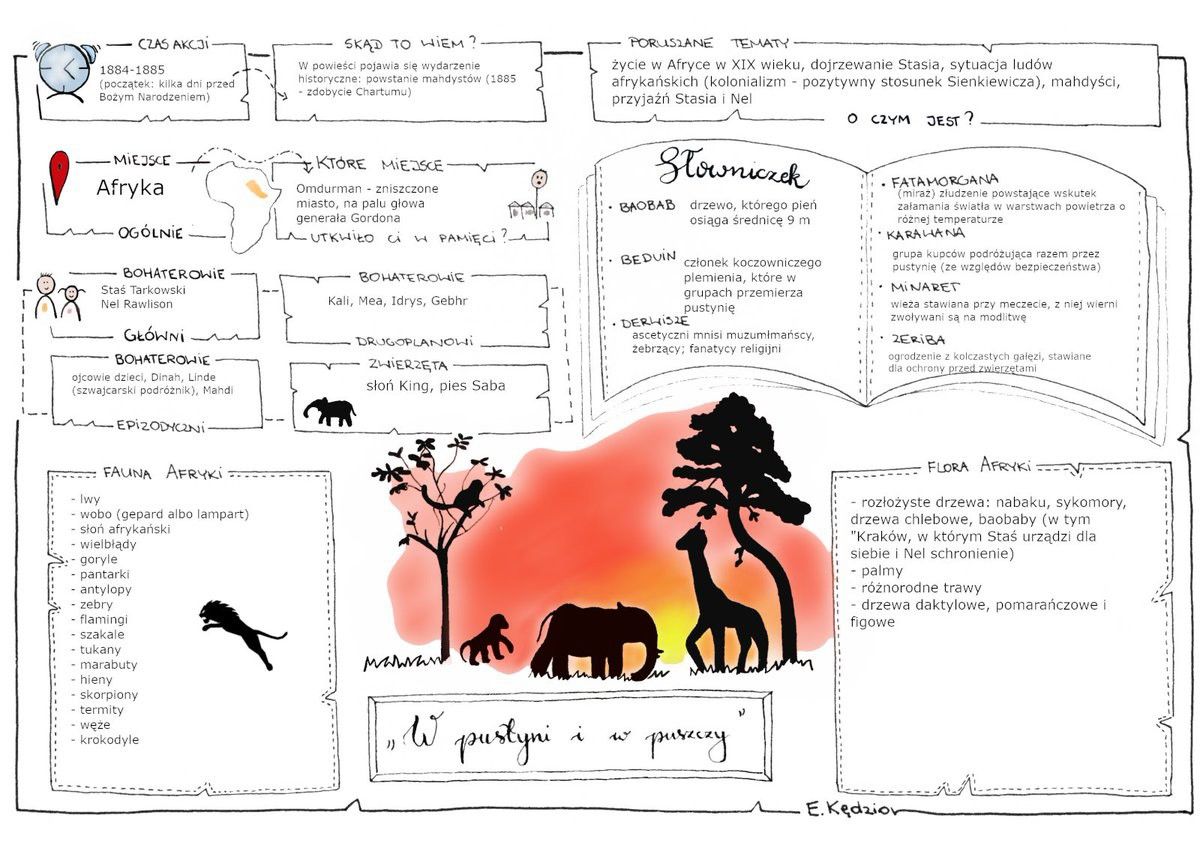 CZAS AKCJI
1884-1885
(początek: kilka dni przed
Bożym Narodzeniem)
SKĄD TO WIEM?
W powieści pojawia się wydarzenie
historyczne: powstanie mahdystów (1885
- zdobycie Chartumu)
PORUSZANE TEMATY
życie w Afryce w XIX wieku, dojrzewanie Stasia, sytuacja ludów
afrykańskich (kolonializm - pozytywny stosunek Sienkiewicza), mahdyści,
przyjaźń Stasia i Nel
O CZYM JEST?
MIEJSCE
Afryka
OGÓLNIE
KTÓRE MIEJSCE
Omdurman - zniszczone
miasto, na palu głowa
generała Gordona
UTKWIŁO CI W PAMIĘCI?
BOHATEROWIE
Staś Tarkowski
Nel Rawlison
GŁÓWNI
BOHATEROWIE
Kali, Mea, Idrys, Gebhr
DRUGOPLANOWI
BOHATEROWIE
ojcowie dzieci, Dinah, Linde
(szwajcarski podróżnik), Mahdi
EPIZODYCZNI
ZWIERZĘTA
słoń King, pies Saba
Słowniczek
• BAOBAB drzewo, którego pień
osiąga średnicę 9 m
• BEDUIN członek koczowniczego
plemienia, które w
grupach przemierza
pustynię
• DERWISZE
ascetyczni mnisi muzumłmańscy,
żebrzący; fanatycy religijni
• FATAMORGANA
(miraż) złudzenie powstające wskutek
załamania światła w warstwach powietrza o
różnej temperaturze
• KARAWANA
grupa kupców podróżująca razem przez
pustynię (ze względów bezpieczeństwa)
• MINARET
wieża stawiana przy meczecie, z niej wierni
zwoływani są na modlitwę
• ZERIBA
ogrodzenie z kolczastych gałęzi, stawiane
dla ochrony przed zwierzętami
FAUNA AFRYKI
- lwy
- wobo (gepard albo lampart)
- słoń afrykański
- wielbłądy
- goryle
- pantarki
- antylopy
- zebry
- flamingi
- szakale
- tukany
- marabuty
- hieny
- skorpiony
- termity
- węże
- krokodyle
FLORA AFRYKI
- rozłożyste drzewa: nabaku, sykomory,
drzewa chlebowe, baobaby (w tym
"Kraków, w którym Staś urządzi dla
siebie i Nel schronienie)
- palmy
- różnorodne trawy
- drzewa daktylowe, pomarańczowe i
figowe
„W pustyni i w puszczy”
E.Kędzior